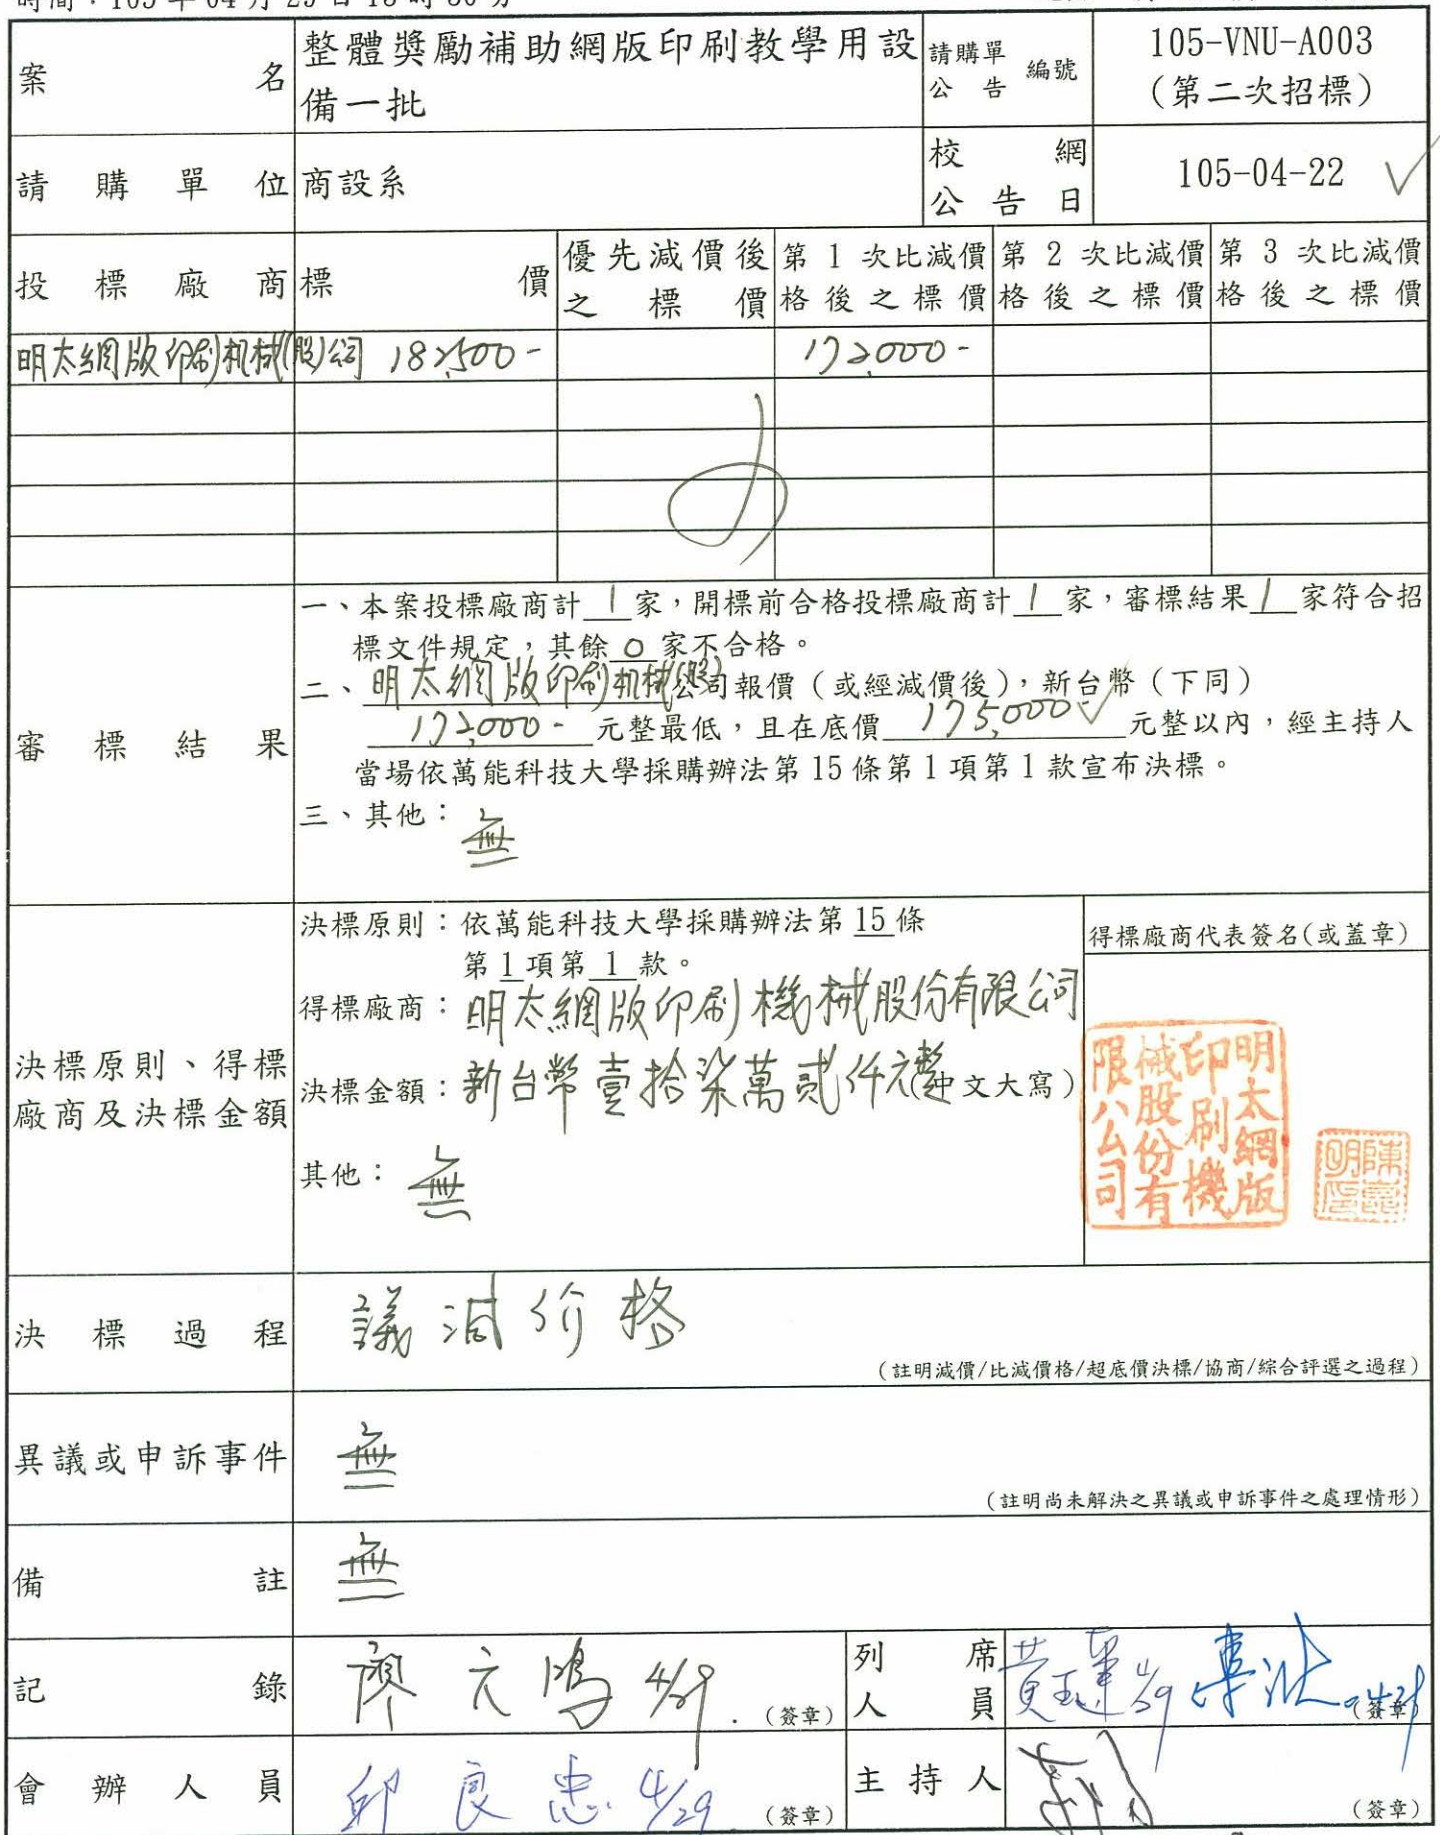 整體獎勵補助網版印刷教學用設
案名
備一批
請購單
公告
編號
105-VNU-A003
(第二次招標)
請購單位
商設系
校網
公告日
105-04-22
投標廠商
標價
優先減價後
之標價
第 1 次比減價
格後之標價
第 2 次比減價
格後之標價
第 3 次比減價
格後之標價
明太網版印刷机械(股)公司
182,500-
172,000-
審標結果
一、本案投標廠商計 1 家,開標前合格投標廠商計 1 家,審標結果 1 家符合招
標文件規定,其餘 0 家不合格。
二、明太網版印刷机械(股)公司報價(或經減價後),新台幣(下同)
172,000- 元整最低,且在底價 175,000 元整以內,經主持人
當場依萬能科技大學採購辦法第 15 條第 1 項第 1 款宣布決標。
三、其他:無
決標原則、得標
廠商及決標金額
決標原則:依萬能科技大學採購辦法第 15 條
第 1 項第 1 款。
得標廠商:明太網版印刷機械股份有限公司
決標金額:新台幣壹拾柒萬貳仟元整(中文大寫)
其他:無
得標廠商代表簽名(或蓋章)
明太網版
印刷機
械股份有
限公司
決標過程
議減价格
(註明減價/比減價格/超底價決標/協商/綜合評選之過程)
異議或申訴事件
無
(註明尚未解決之異議或申訴事件之處理情形)
備註
無
記錄
廖元鴻 4/29
(簽章)
列席
人員
(簽章)
會辦人員
邱良忠 4/29
(簽章)
主持人
(簽章)